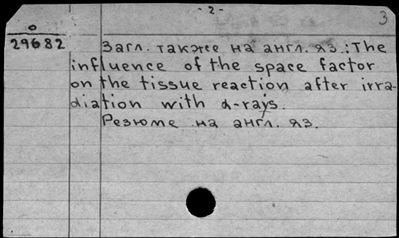 - 2 -
3
0
29682
Загл. также на англ. яз.: The
influence of the space factor
on the tissue reaction after irra-
diation with α-rays.
Резюме на англ. яз.